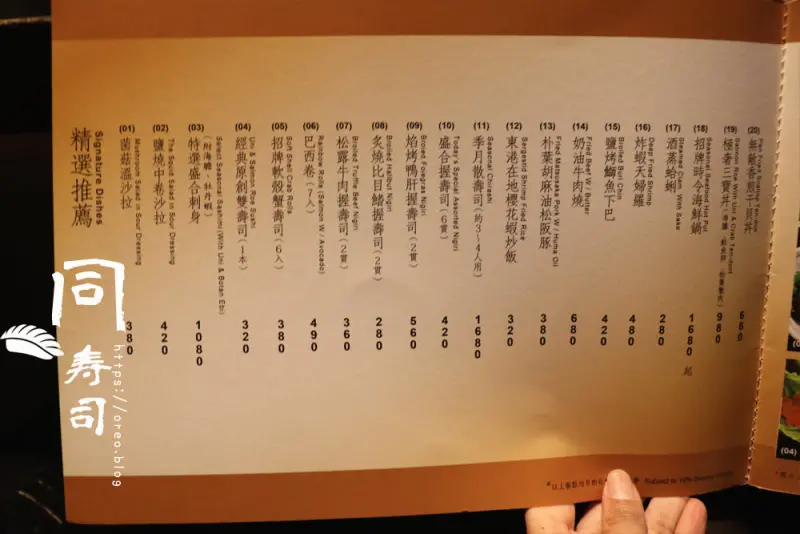 精選推薦
Signature Dishes
(01)
菌菇溫沙拉
Mushroom Salad in Sour Dressing
380
(02)
鹽燒中卷沙拉
The Squid Salad in Sour Dressing
420
(03)
特選盛合刺身
(附海膽、牡丹蝦)
Select Seasonal Sashimi (With Uni & Botan Ebi)
1080
(04)
經典原創雙壽司(1本)
Uni & Salmon Rice Sushi
320
(05)
招牌軟殼蟹壽司(6入)
Soft Shell Crab Rolls
380
(06)
巴西卷(7入)
Rainbow Rolls (Salmon W / Avocado)
490
(07)
松露牛肉握壽司(2貫)
Broiled Truffle Beef Nigiri
360
(08)
炙燒比目鰭握壽司(2貫)
Broiled Halibut Nigiri
280
(09)
焰烤鴨肝握壽司(2貫)
Broiled Foiegras Nigiri
560
(10)
盛合握壽司(6貫)
Today's Special Assorted Nigiri
420
(11)
季月散壽司(約3-4人用)
Seasonal Chirashi
1680
(12)
東港在地櫻花蝦炒飯
Sergestid Shrimp Fried Rice
320
(13)
朴葉胡麻油松阪豚
Fried Matsusaka Pork W / Huma Oil
380
(14)
奶油牛肉燒
Fried Beef W / Butter
680
(15)
鹽烤鰤魚下巴
Broiled Buri Chin
420
(16)
炸蝦天婦羅
Deep Fried Shrimp
480
(17)
酒蒸蛤蜊
Steamed Clam With Sake
280
(18)
招牌時令海鮮鍋
Seasonal Seafood Hot Pot
1680 起
(19)
極奢三寶丼
Salmon Roe With Uni & Crab Ten-dont
980
(20)
無敵香煎干貝丼
680
Subject to 10%
(04)
同壽司
https://oreo.blog